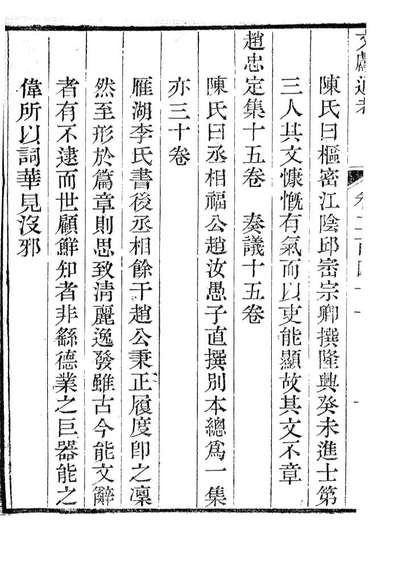 文獻通考
卷二百四十一
陳氏曰樞密江陰邱崈宗卿撰隆興癸未進士第
三人其文慷慨有氣而以吏能顯故其文不章
趙忠定集十五卷 奏議十五卷
陳氏曰丞相福公趙汝愚子直撰別本總爲一集
亦三十卷
雁湖李氏書後丞相餘干趙公秉正履度卽之凜
然至形於篇章則思致淸麗逸發雖古今能文辭
者有不逮而世顧鮮知者非繇德業之巨器能之
偉所以詞華見沒邪